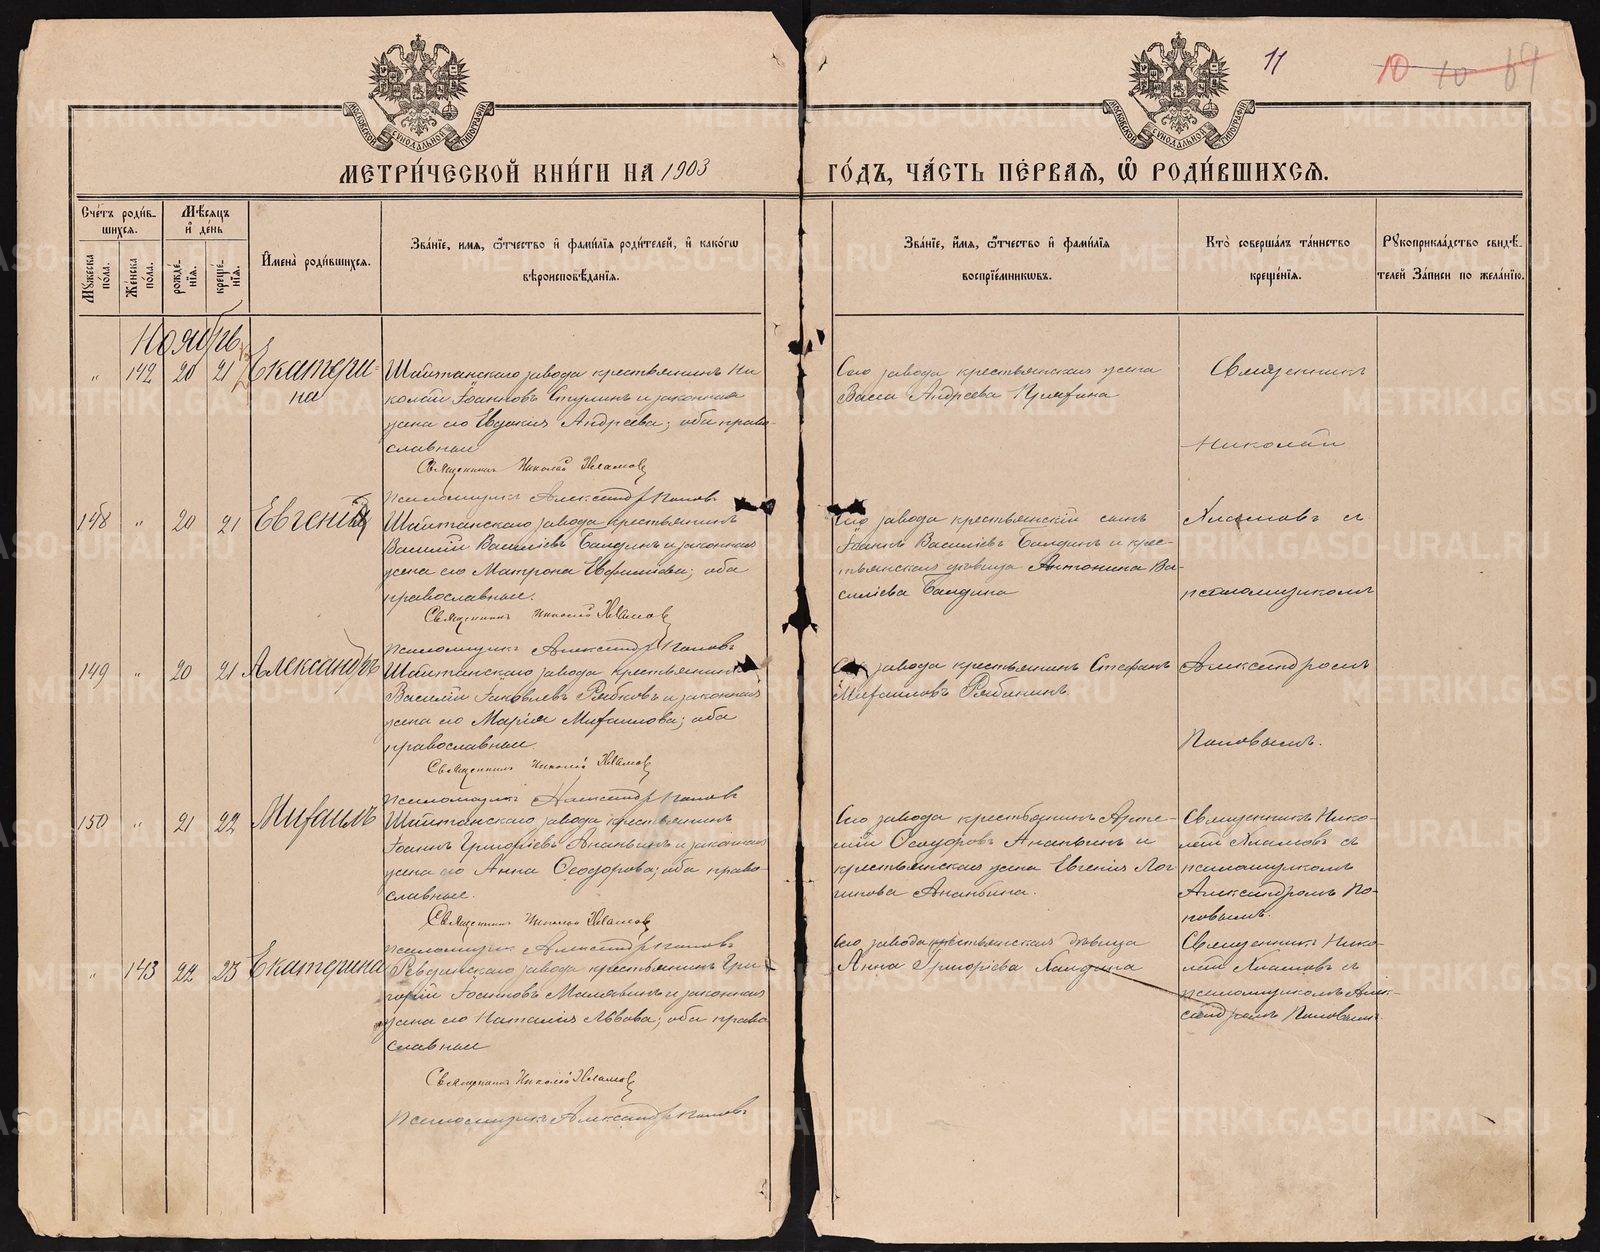 11
10 10 69
МОСКОВСКОЙ СѴНОДАЛЬНОЙ ТИПОГРАФІИ
МОСКОВСКОЙ СѴНОДАЛЬНОЙ ТИПОГРАФІИ
МЕТРИ́ЧЕСКОЙ КНИ́ГИ НА 1903
ГО́ДЪ, ЧА́СТЬ ПЕ́РВАЯ, Ѡ҆ РОДИ́ВШИХСЯ.
Сче́тъ роди́в-
шихся.
Мѹ́жеска пола.
Же́нска пола.
Мѣ́сяцъ
и҆ де́нь
рожде́-
нїя.
креще́-
нїя.
И҆мена̀ роди́вшихся.
Зва́нїе, и́мя, ѻ҆́тчество и҆ фами́лїя роди́телей, и҆ како́гѡ
вѣроисповѣ́данїя.
Зва́нїе, и҆́мя, ѻ҆́тчество и҆ фами́лїя
воспрїе́мниковъ.
Кто̀ соверша́лъ та́инство
креще́нїя.
Рѹкоприкла́дство свидѣ́-
телей За́писи по жела́нїю.
Ноябрь
" 142 20 21 Екатери-
на
Шайтанскаго завода крестьянинъ Ни
колай Іоанновъ Стулинъ и законная
жена его Евдокія Андреева; оба право-
славные
Священникъ Николай Хламовъ
Псаломщикъ Александръ Поповъ
Сего завода крестьянская жена
Васса Андреева
Священникъ
Николай
148 " 20 21 Евгеній
Шайтанскаго завода крестьянинъ
Василій Василіевъ Балдинъ и законная
жена его Матрона Евфиміева; оба
православные.
Священникъ Николай Хламовъ
Псаломщикъ Александръ Поповъ
Сего завода крестьянскій сынъ
Іоаннъ Василіевъ Балдинъ и крес-
тьянская дѣвица Антонина Ва-
силіева Балдина
Хламовъ съ
псаломщикомъ
149 " 20 21 Александръ
Шайтанскаго завода крестьянинъ
Василій Іаковлевъ Рябковъ и законная
жена его Марія Михаилова; оба
православные.
Священникъ Николай Хламовъ
Псаломщикъ Александръ Поповъ
Сего завода крестьянинъ Стефанъ
Михаиловъ Рябининъ.
Александромъ
Поповымъ.
150 " 21 22 Михаилъ
Шайтанскаго завода крестьянинъ
Іоаннъ Григоріевъ Ананьинъ и законная
жена его Анна Ѳеодорова; оба право-
славные.
Священникъ Николай Хламовъ
Псаломщикъ Александръ Поповъ
Сего завода крестьянинъ Арте-
мій Ѳеодоровъ Ананьинъ и
крестьянская жена Евгенія Лог
гинова Ананьина.
Священникъ Нико-
лай Хламовъ съ
псаломщикомъ
Александромъ По-
повымъ.
" 143 22 23 Екатерина
Ревдинскаго завода крестьянинъ Гри-
горій Іоанновъ Малявинъ и законная
жена его Наталія Львова; оба право
славные
Священникъ Николай Хламовъ
Псаломщикъ Александръ Поповъ
Сего завода крестьянская дѣвица
Анна Григоріева Халдина
Священникъ Нико-
лай Хламовъ съ
псаломщикомъ Алек-
сандромъ Поповымъ
METRIKI.GASO-URAL.RU